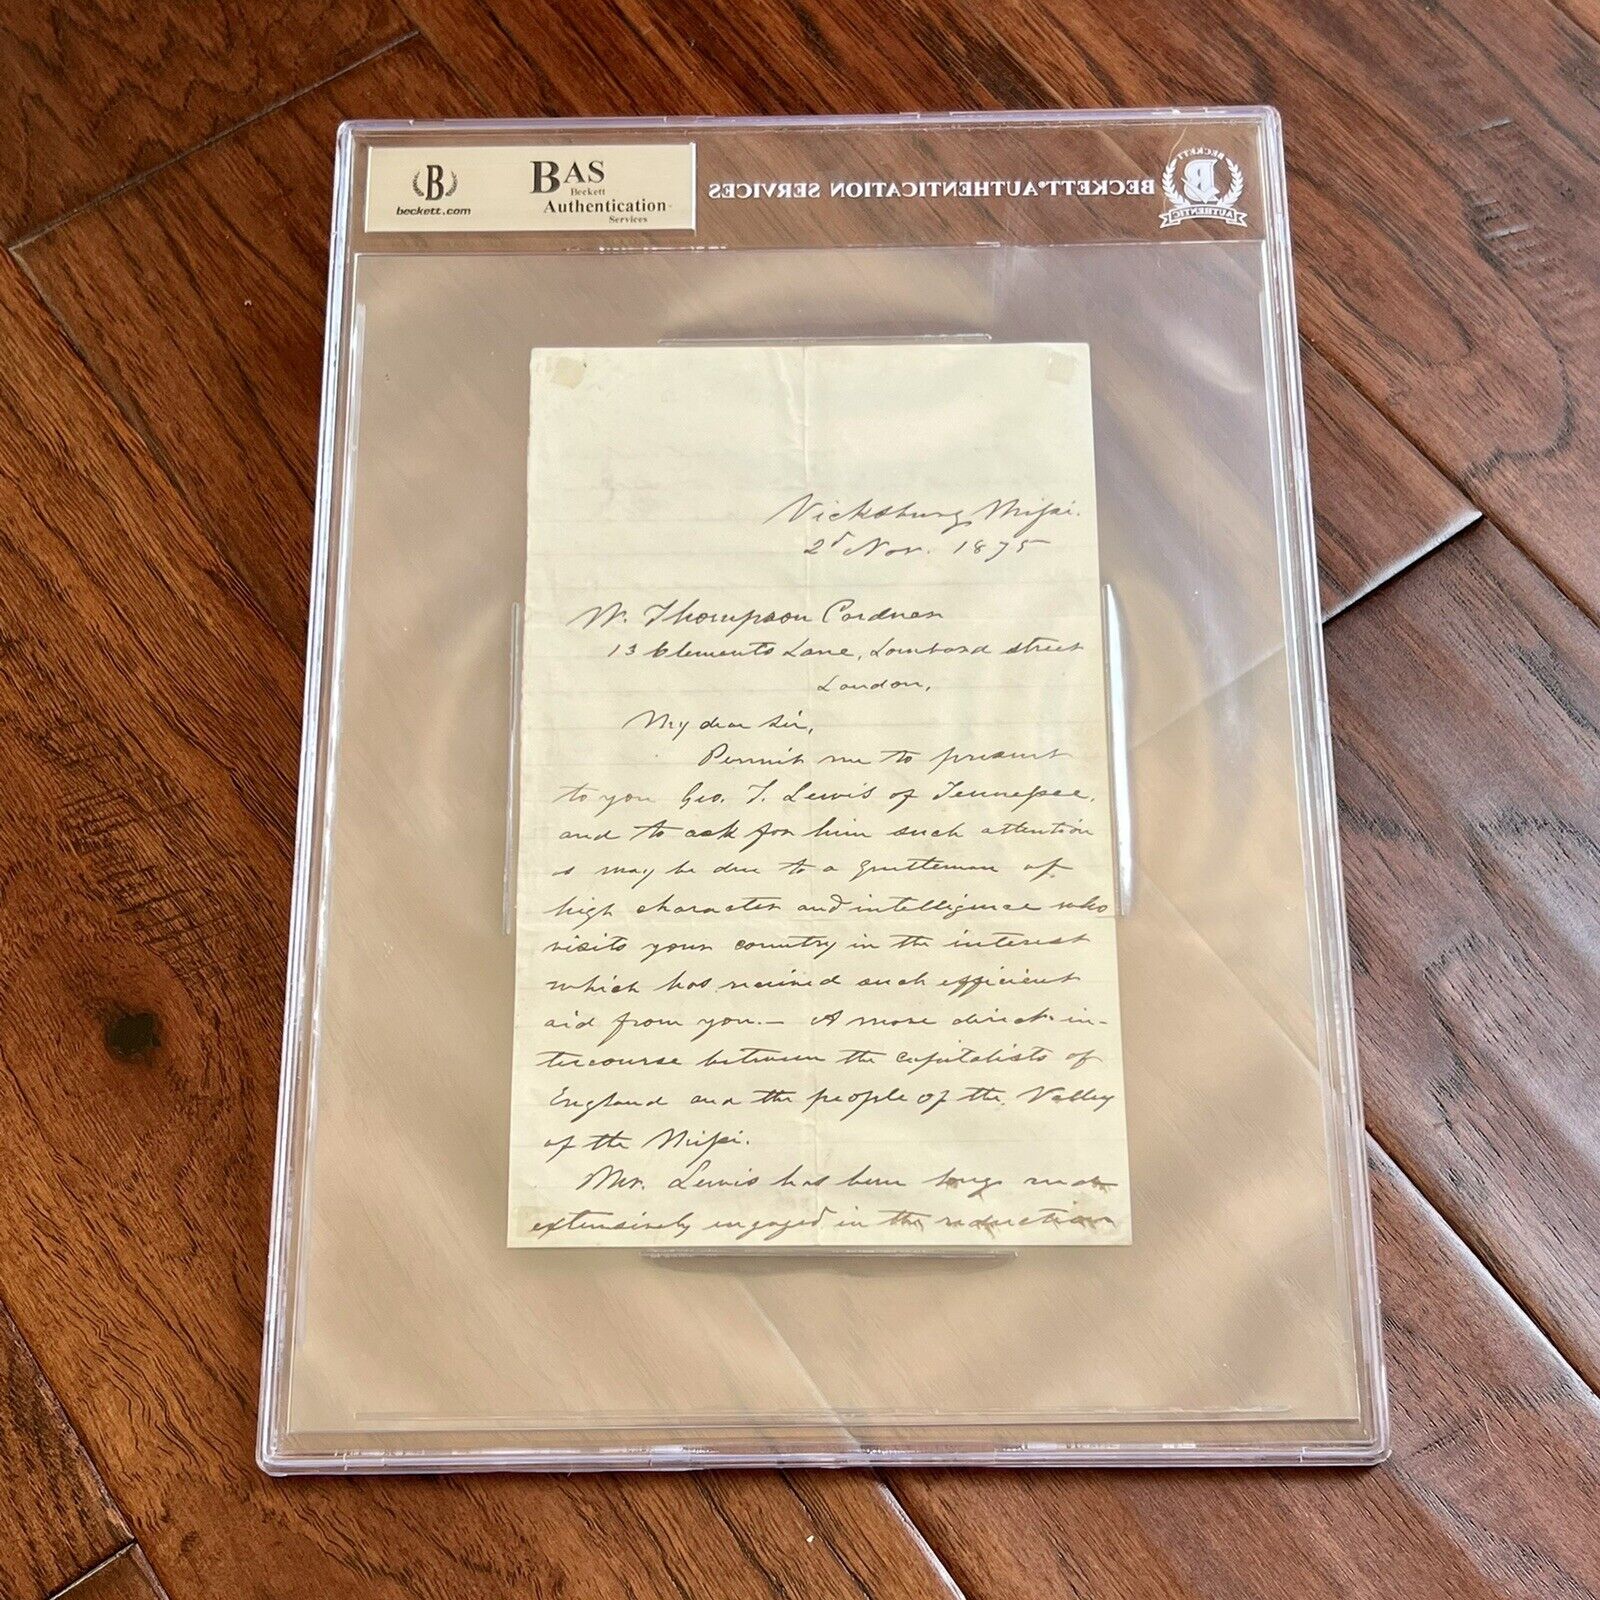 B
beckett.com
BAS
Beckett
Authentication
Services
BECKETT AUTHENTICATION SERVICES
BECKETT
B
AUTHENTIC
Vicksburg, Missi.
2d Nov. 1875
W. Thompson
13 Clements Lane, Lombard street
London,
My dear Sir,
Permit me to present
to you Geo. T. Lewis of Tennessee,
and to ask for him such attention
as may be due to a gentleman of
high character and intelligence who
visits your country in the interest
which has received such efficient
aid from you.— A more direct in-
tercourse between the capitalists of
England and the people of the Valley
of the Missi.
Mr. Lewis has been long and
extensively engaged in the reduction